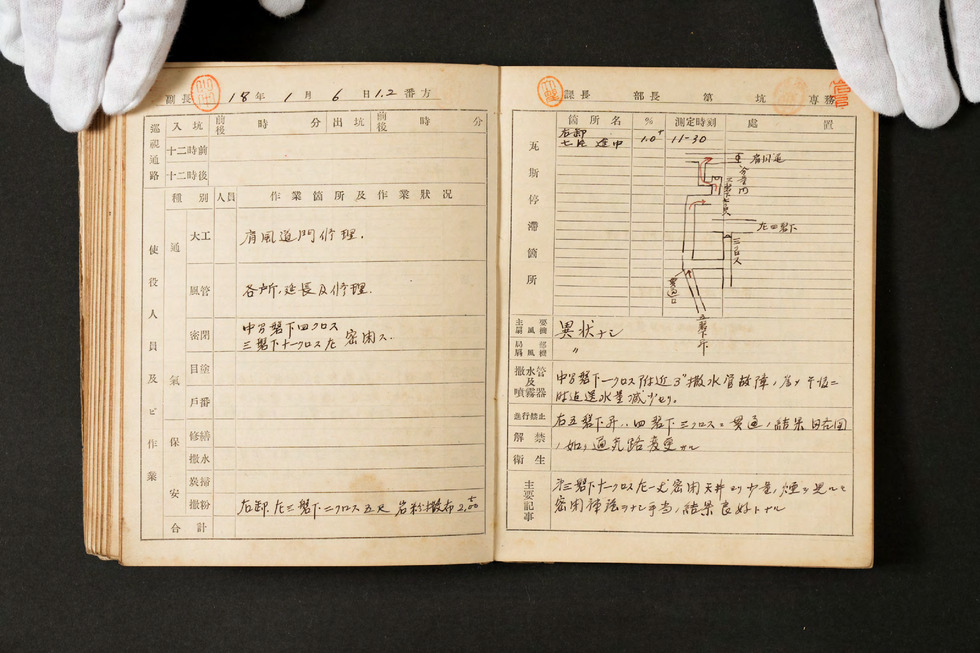 副長 18年 1月 6日 1.2番方
巡視通路 入坑 前後 時 分 出坑 前後 時 分
十二時前
十二時後
使役人員及ビ作業
種別 人員 作業箇所及作業状況
通氣
大工 肩風道門修理.
風管 各所,延長及修理.
密閉 中号磐下四クロス
三磐下ナークロス左 密閉ス.
目塗
戸番
保安
修繕
撒水
炭掃
撒粉 右卸 左三磐下ニクロス五尺 岩粉撒布 2.00
合計
課長 部長 第 坑 専務
瓦斯停滞箇所
箇所名 % 測定時刻 處置
右卸
七片 途中 1.0+ 11-30
肩風道
左四磐下
三クロス
貫通口
五磐下卸
主要扇風機 異状ナシ
局部扇風機 〃
撒水管及噴霧器 中号磐下一クロス附近 3"撒水管故障,
送水量減少セリ.
進行禁止 右五磐下昇,四磐下三クロスニ貫通,結果
解禁 如,通気路変更
衛生
主要記事 三磐下ナークロス左 密閉天井ヨリ少量,煙ヲ見ル
密閉 手当,結果良好トナル